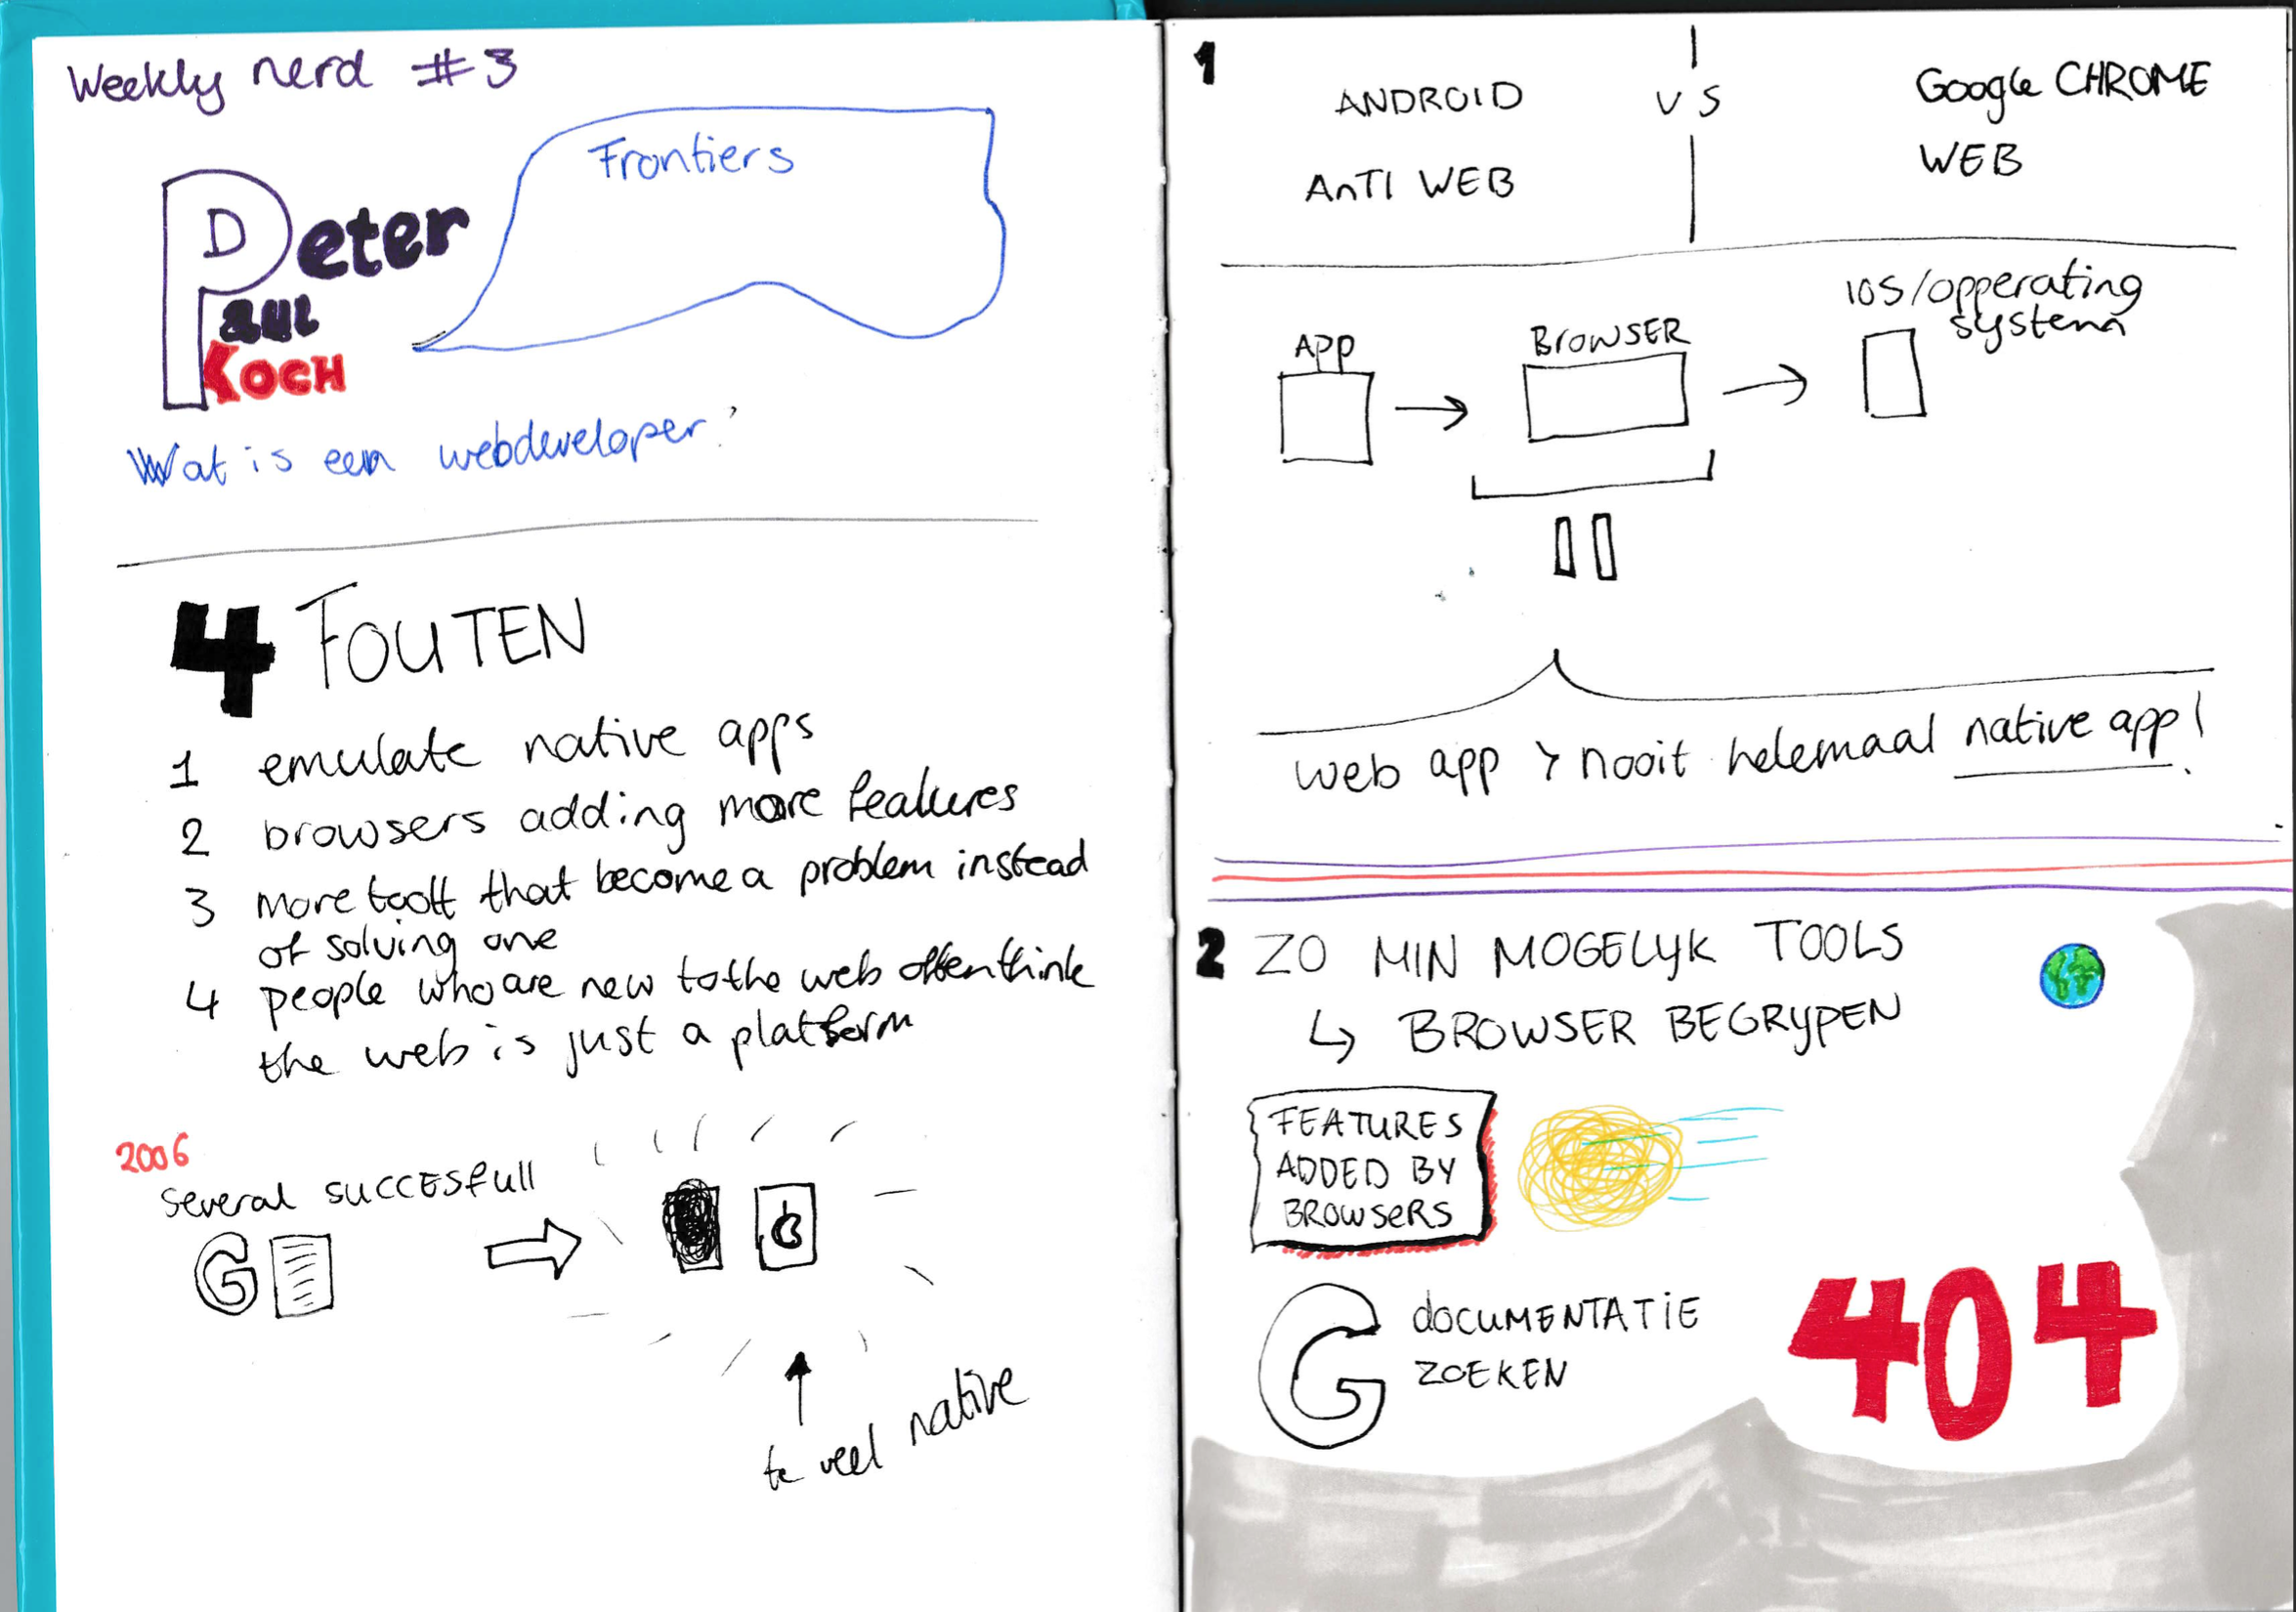 Weekly nerd #3
Frontiers
Peter
Paul
Koch
Wat is een webdeveloper?
4 FOUTEN
1 emulate native apps
2 browsers adding more features
3 more toolt that become a problem instead
of solving one
4 people who are new to the web often think
the web is just a platform
2006
Several succesfull
G
te veel native
1
ANDROID VS Google CHROME
AnTI WEB WEB
APP BROWSER IOS/opperating
system
web app > nooit helemaal native app!
2 ZO MIN MOGELYK TOOLS
↳ BROWSER BEGRYPEN
FEATURES
ADDED BY
BROWSERS
G documentatie
zoeken
404